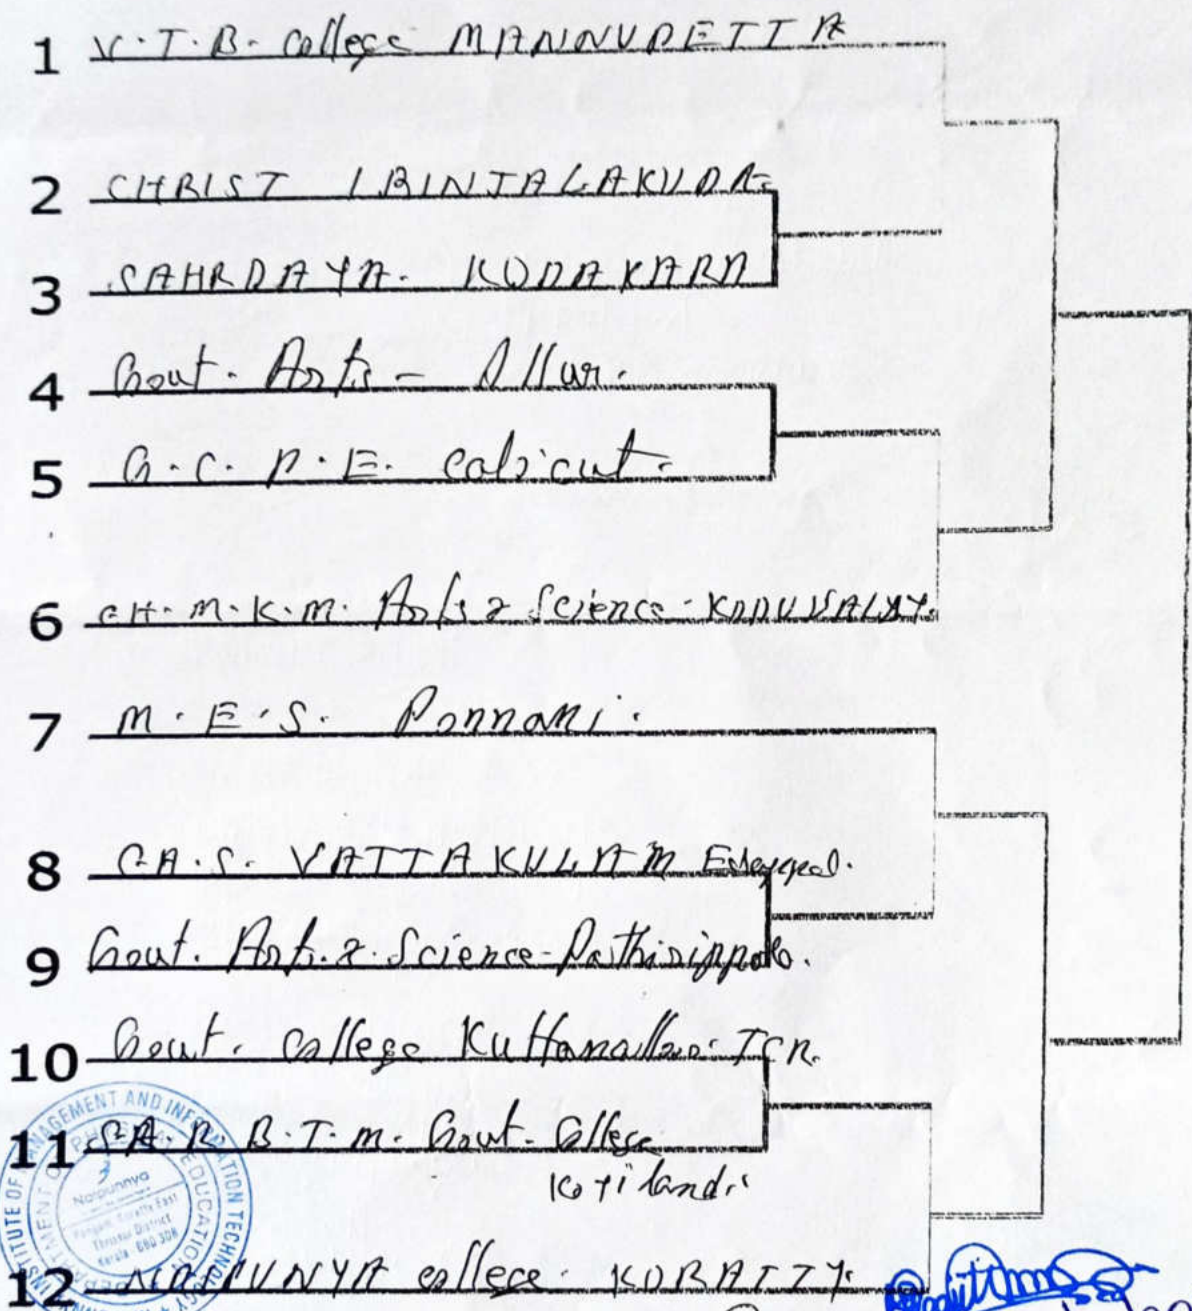 1 V.T.B. College MANNUPETTA
2 CHRIST IRINJALAKUDA
3 SAHRDAYA. KODAKARA
4 Govt. Arts - Ollur.
5 G.C.P.E. Calicut.
6 CH.M.K.M. Arts & Science - KODUVALLY.
7 M.E.S. Ponnani.
8 C.A.S. VATTAKULAM Edappal.
9 Govt. Arts & Science - Pathirippala.
10 Govt. College Kuttanallur. TCR.
11 S.A.R.B.T.M. Govt. College
Koyilandi.
12 NAIPUNYA College. KORATTY.
INSTITUTE OF MANAGEMENT AND INFORMATION TECHNOLOGY
DEPARTMENT OF PHYSICAL EDUCATION
Naipunya
Pongam, Koratty East
Thrissur District
Kerala - 680 308